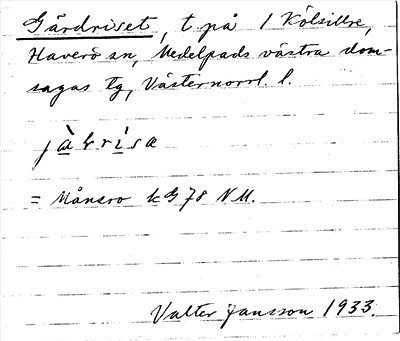 Gärdriset, t. på 1 Kölsillre,
Haverö sn, Medelpads västra dom-
sagas tg, Västernorrl. l.
= Månsro kG 78 NU.
Valter Jansson 1933.